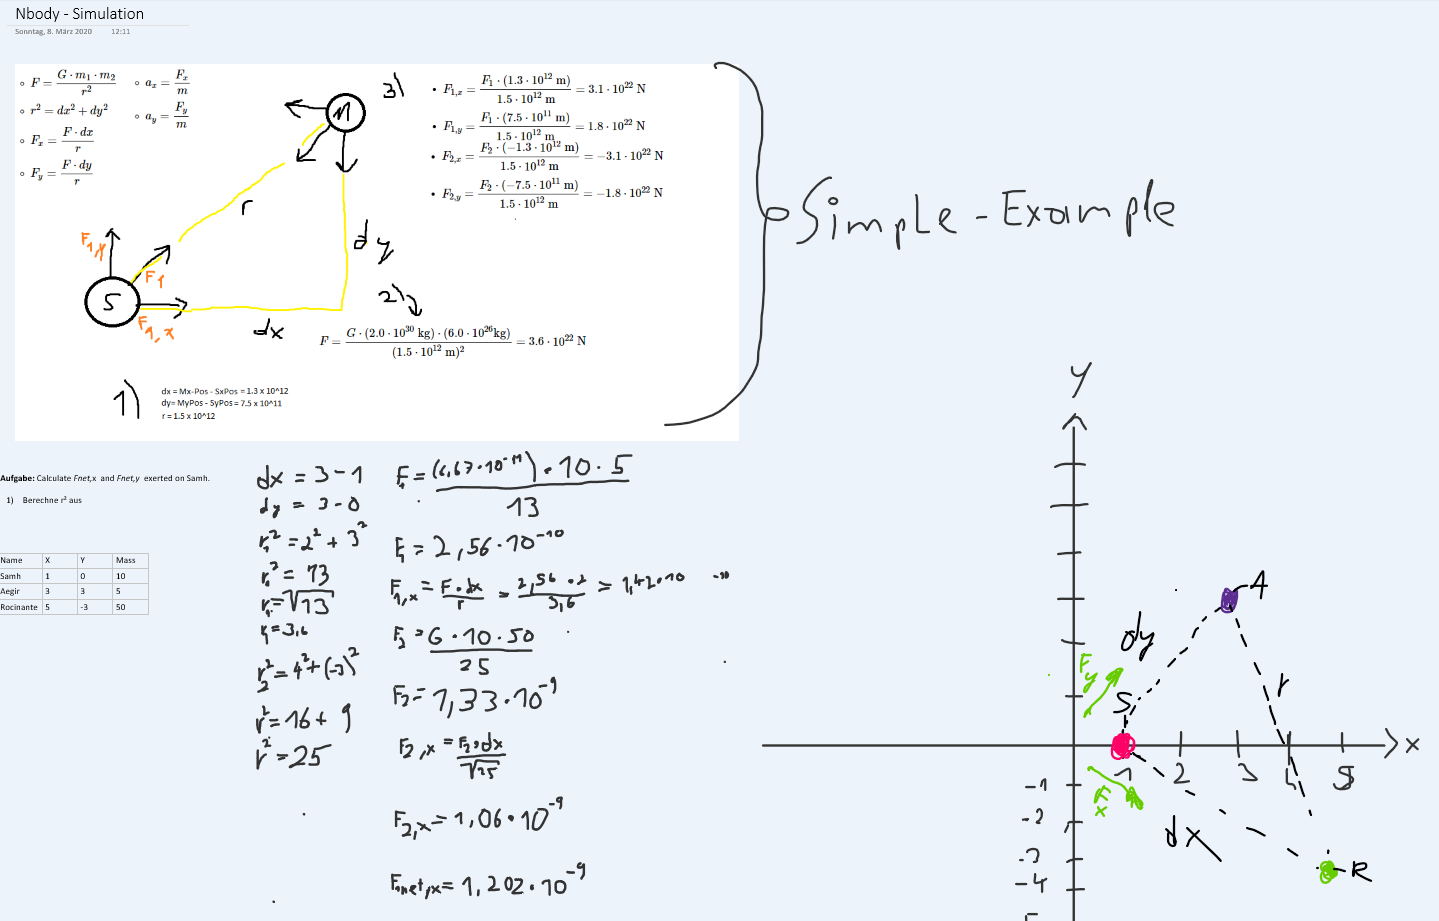 Nbody - Simulation
Sonntag, 8. März 2020 12:11
∘ F = G · m₁ · m₂ / r²
∘ r² = dx² + dy²
∘ Fₓ = F · dx / r
∘ F_y = F · dy / r
∘ aₓ = Fₓ / m
∘ a_y = F_y / m
M
r
dy
S
F1,y
F1
F1,x
dx
3)
• F₁,ₓ = F₁ · (1.3 · 10¹² m) / 1.5 · 10¹² m = 3.1 · 10²² N
• F₁,y = F₁ · (7.5 · 10¹¹ m) / 1.5 · 10¹² m = 1.8 · 10²² N
• F₂,ₓ = F₂ · (−1.3 · 10¹² m) / 1.5 · 10¹² m = −3.1 · 10²² N
• F₂,y = F₂ · (−7.5 · 10¹¹ m) / 1.5 · 10¹² m = −1.8 · 10²² N
2)
F = G · (2.0 · 10³⁰ kg) · (6.0 · 10²⁶kg) / (1.5 · 10¹² m)² = 3.6 · 10²² N
1)
dx = Mx-Pos - SxPos = 1.3 x 10^12
dy= MyPos - SyPos = 7.5 x 10^11
r = 1.5 x 10^12
Simple-Example
Aufgabe: Calculate Fnet,x and Fnet,y exerted on Samh.
1) Berechne r² aus
Name X Y Mass
Samh 1 0 10
Aegir 3 3 5
Rocinante 5 -3 50
dx = 3-1
dy = 3-0
r₁² = 2² + 3²
r₁² = 13
r₁ = √13
r₁ = 3,6
r₂² = 4² + (-3)²
r² = 16 + 9
r² = 25
F₁ = (6,67·10⁻¹¹) · 10 · 5 / 13
F₁ = 2,56·10⁻¹⁰
F₁,x = F·dx / r = 2,56·2 / 3,6 = 1,42·10⁻¹⁰
F₂ = G · 10 · 50 / 25
F₂ = 1,33·10⁻⁹
F₂,x = F₂·dx / √25
F₂,x = 1,06·10⁻⁹
Fnet,x = 1,202·10⁻⁹
y
A
dy
Fy
S
r
x
1 2 3 4 5
-1
-2
-3
-4
Fx
dx
R